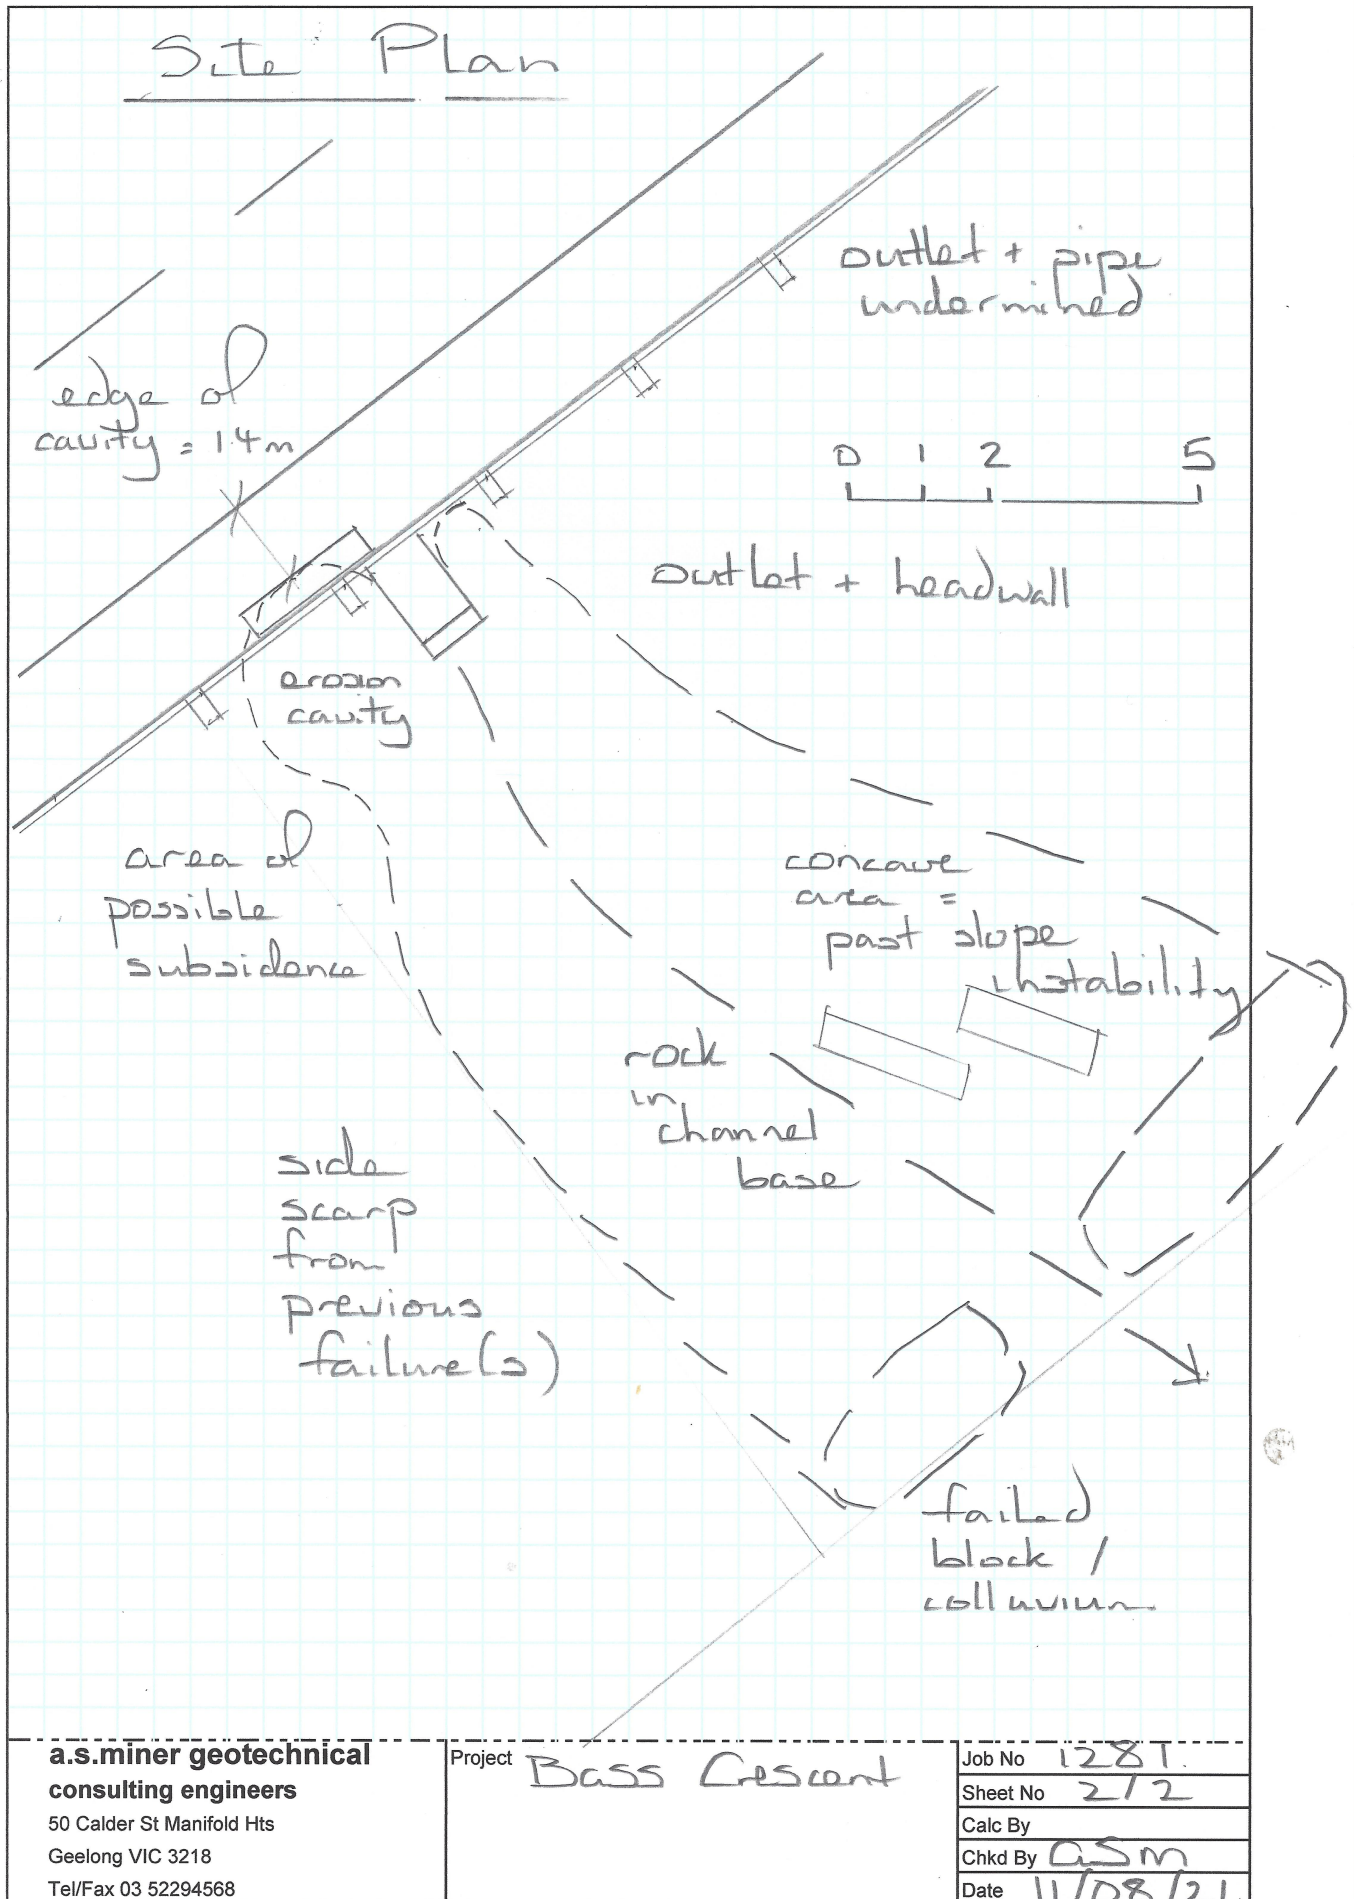 Site Plan
outlet + pipe
undermined
edge of
cavity = 1.4m
0 1 2 5
outlet + headwall
erosion
cavity
area of
possible
subsidence
concave
area =
past slope
instability
rock
in
channel
base
side
scarp
from
previous
failure(s)
failed
block /
colluvium
a.s.miner geotechnical
consulting engineers
50 Calder St Manifold Hts
Geelong VIC 3218
Tel/Fax 03 52294568
Project Bass Crescent
Job No 1281.
Sheet No 2/2
Calc By
Chkd By asm
Date 11/08/21